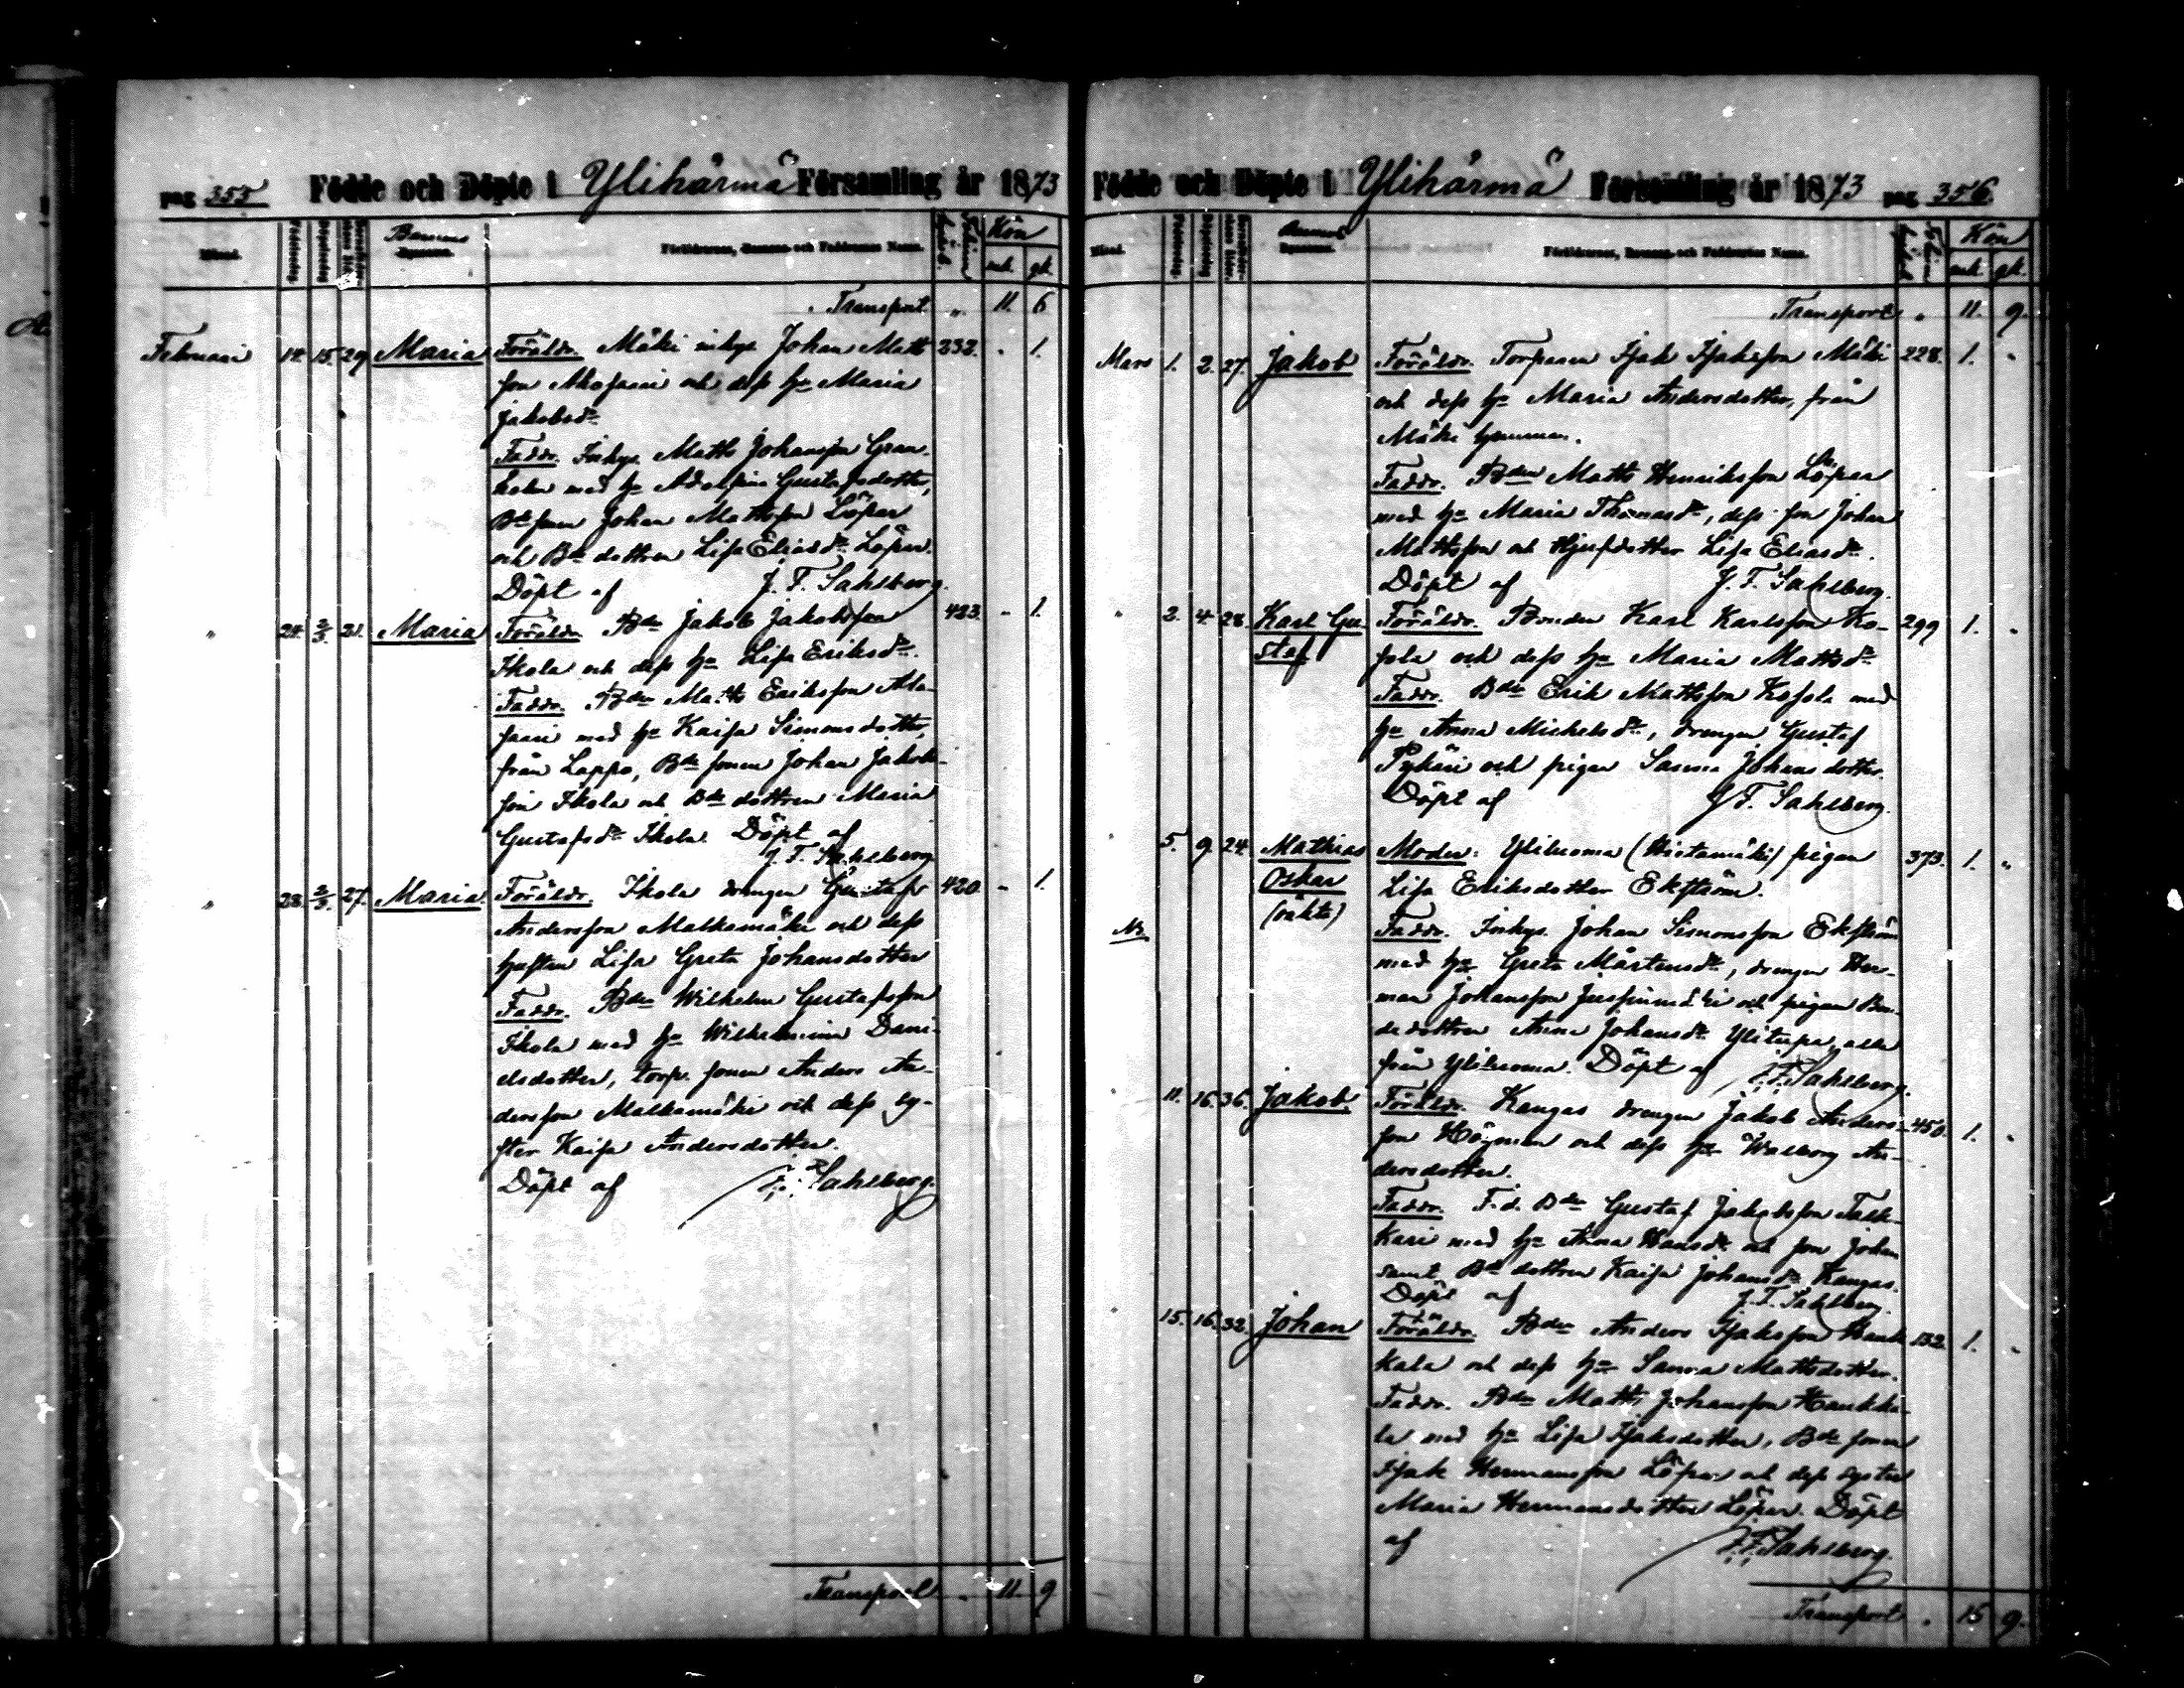 pag 355 Födde och Döpte i Ylihärmä Församling år 1873
Barnens
Kön
mk. qk.
Transport " 11. 6
Februari 14. 15. 29 Maria Föräldr. Mäki inhys Johan Matt 232. " 1.
son och dess hu Maria
Jakobsdr
Faddr. Inhys. Matts Johansson Gran-
holm med hu Adolfina Gustafsdotter,
Bdesonen Johan Mattsson Löper
och Bdedottren Lisa Eliasdr Löper.
Döpt af J. F. Sahlberg.
" 24. 2/3. 21. Maria Föräldr. Bden Jakob Jakobsson 423. - 1.
Ikola och dess hu Lisa Eriksdr.
Faddr. Bden Matts Eriksson Ala-
med hu Kaisa Simonsdotter,
från Lappo, Bdesonen Johan Jakobs-
son Ikola och Bdedottren Maria
Gustafsdr Ikola. Döpt af
J. F. Sahlberg
" 28. 2/3. 27. Maria. Föräldr. Ikola drengen Gustaf 420. - 1.
Andersson Malkamäki och dess
hustru Lisa Greta Johansdotter
Faddr. Bden Wilhelm Gustafsson
Ikola med hu Wilhelmina Dani-
elsdotter, torp. sonen Anders An-
dersson Malkamäki och dess sy-
ster Kaisa Andersdotter.
Döpt af J. F. Sahlberg.
Transport " 11. 9
Födde och Döpte i Ylihärmä Församling år 1873 pag 356.
Kön
mk. qk.
Transport " 11. 9.
Mars 1. 2. 27. Jakob Föräldr. Torparen Isak Isaksson Mäki 228. 1. "
och dess hu Maria Andersdotter, från
Mäki hemman.
Faddr. Bden Matts Henriksson Löper
med hu Maria Thomasdr, dess son Johan
Mattsson och Lisa Eliasdr.
Döpt af J. F. Sahlberg.
" 2. 4. 28. Karl Gu- Föräldr. Bonden Karl Karlsson Ko- 299 1. "
staf sola och dess hu Maria Mattsdr
Faddr. Bde Erik Mattsson Kosola med
hu Anna Michelsdr, drengen Gustaf
och pigan Sanna Johansdotter.
Döpt af J. F. Sahlberg.
5. 9. 24. Mathias Moder: Yliluoma (Hietamäki) pigan 373. 1. "
Oskar Lisa Eriksdotter Ekström.
(oäkta)
Faddr. Inhys. Johan Simonsson Ekström
med hu Greta Mårtensdr, drengen Her-
man Johansson och pigan Bon-
dedottren Anna Johansdr Ylitupa, alla
från Yliluoma. Döpt af J. F. Sahlberg.
11. 16. 36. Jakob. Föräldr. Kangas drengen Jakob Anders- 450. 1. "
son och dess hu Walborg An-
dersdotter.
Faddr. F.d. Bde Gustaf Jakobsson Talk-
kari med hu Anna Hansdr och son Johan
samt Bdedottren Kaisa Johansdr Kangas.
Döpt af J. F. Sahlberg.
15. 16. 32. Johan Föräldr. Bden Anders Isaksson 132. 1. "
och dess hu Sanna Mattsdotter.
Faddr. Bde Matts Johansson
la med hu Lisa Isaksdotter, Bdesonen
Isak Hermansson Löper och dess syster
Maria Hermansdotter Löper. Döpt
af J. F. Sahlberg.
Transport " 15 9.